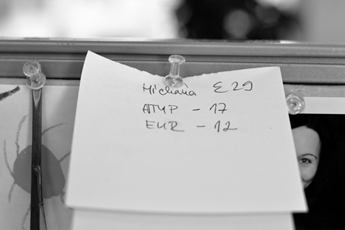 Michaela E 29
ATYP - 17
EUR - 12